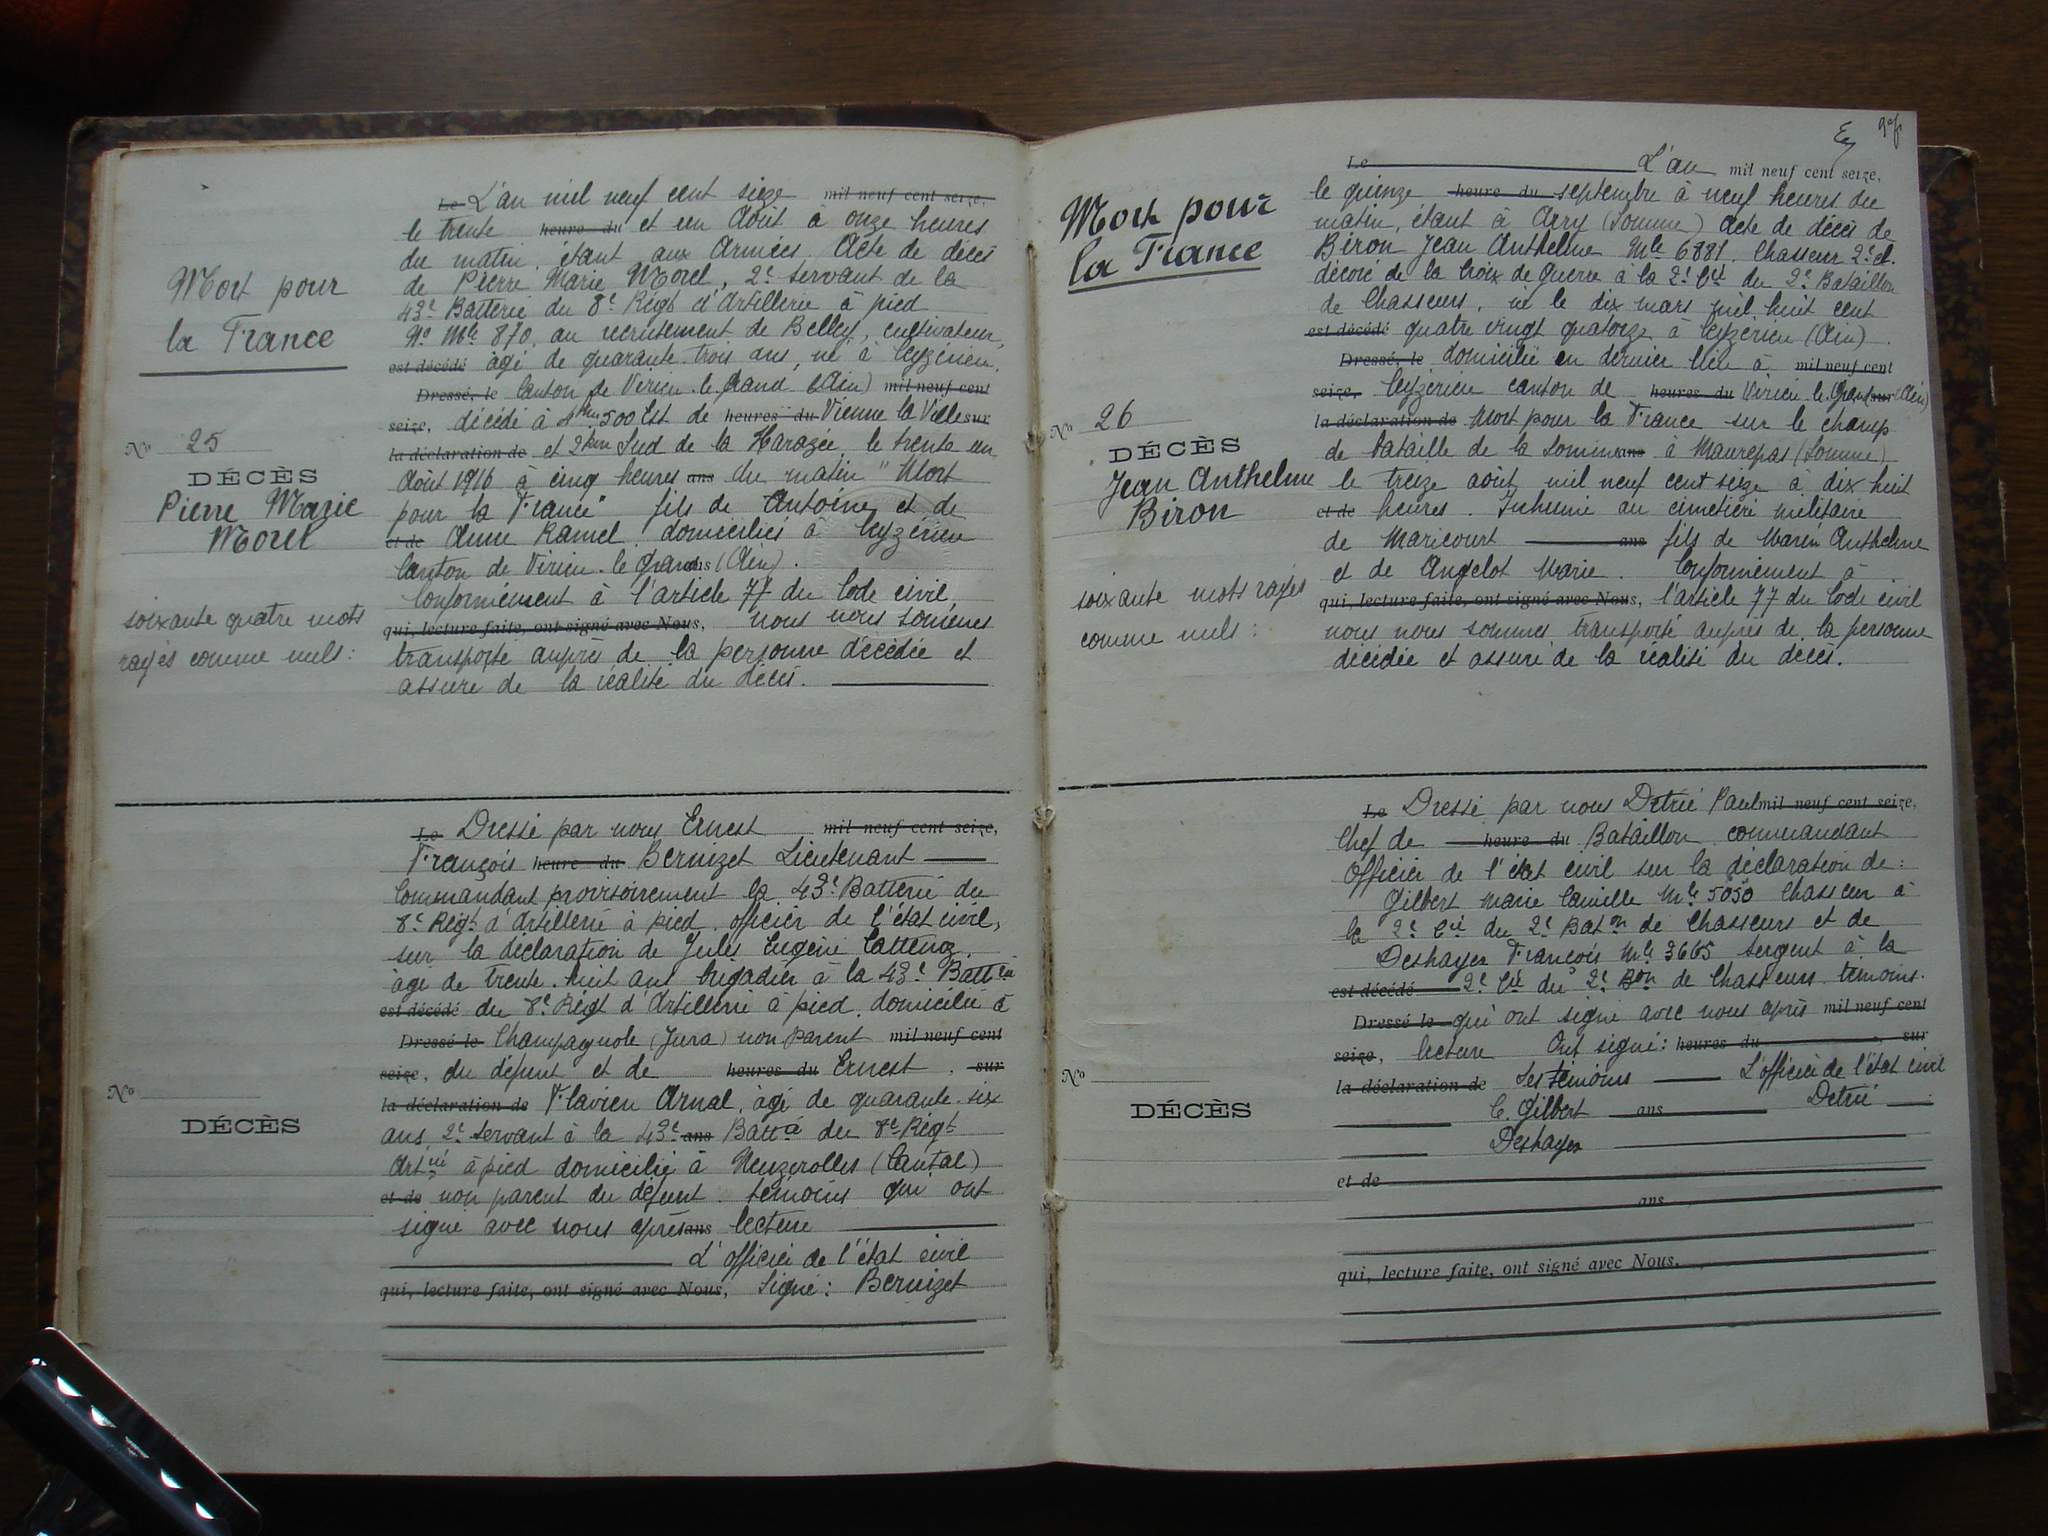 Mort pour
la France
No 25
DÉCÈS
Pierre Marie
Morel
soixante quatre mots
rayés comme nuls :
Le L'an mil neuf cent seize mil neuf cent seize,
le trente heure du et un Août à onze heures
du matin, étant aux Armées. Acte de décès
de Pierre Marie Morel, 2e servant de la
43e Batterie du 8e Régt d'Artillerie à pied
No Mle 870, au recrutement de Belley, cultivateur,
est décédé âgé de quarante trois ans, né à Ceyzérieu,
Dressé, le Canton de Virieu-le-Grand (Ain) mil neuf cent
seize, décédé à 500 Est de heures du Vienne la Ville sur
la déclaration de et 2km Sud de la Harazée, le trente un
Août 1916 à cinq heures ans du matin "Mort
pour la France" fils de Antoine et de
et de Anne Ramel domiciliés à Ceyzérieu
Canton de Virieu-le-Grand ans (Ain).
Conformément à l'article 77 du Code civil,
qui, lecture faite, ont signé avec Nous, nous nous sommes
transporté auprès de la personne décédée et
assuré de la réalité du décès.
No
DÉCÈS
Le Dressé par nous Ernest mil neuf cent seize,
François heure du Bernizet Lieutenant
Commandant provisoirement la 43e Batterie du
8e Régt d'Artillerie à pied, officier de l'état civil,
sur la déclaration de Jules Eugène Cattenoz,
âgé de trente-huit ans brigadier à la 43e Battrie
est décédé du 8e Régt d'Artillerie à pied, domicilié à
Dressé le Champagnole (Jura) non parent mil neuf cent
seize, du défunt et de heures du Ernest sur
la déclaration de Flavien Arnal, âgé de quarante-six
ans 2e servant à la 43e ans Battie du 8e Régt
Artrie à pied domicilié à (Cantal)
et de non parent du défunt, témoins qui ont
signé avec nous après ans lecture
L'officier de l'état civil
qui, lecture faite, ont signé avec Nous, Signé : Bernizet
Mort pour
la France
No 26
DÉCÈS
Jean Anthelme
Biron
soixante mots rayés
comme nuls :
Le L'an mil neuf cent seize,
le quinze heure du septembre à neuf heures du
matin, étant à (Somme) acte de décès de
Biron Jean Anthelme Mle 6881, Chasseur 2e cl.
décoré de la Croix de guerre à la 2e Cie du 2e Bataillon
de Chasseurs, né le dix mars mil huit cent
est décédé quatre vingt quatorze à Ceyzérieu (Ain)
Dressé, le domicilié en dernier lieu à mil neuf cent
seize, Ceyzérieu canton de heures du Virieu-le-Grand sur (Ain)
la déclaration de Mort pour la France sur le champ
de bataille de la Somme ans à Maurepas (Somme)
le treize août mil neuf cent seize à dix huit
et de heures. Inhumé au cimetière militaire
de Maricourt ans fils de Anthelme
et de Angelot Marie. Conformément à
qui, lecture faite, ont signé avec Nous, l'article 77 du Code civil
nous nous sommes transporté auprès de la personne
décédée et assuré de la réalité du décès.
No
DÉCÈS
Le Dressé par nous Detrie Paul mil neuf cent seize,
Chef de heure du Bataillon commandant
Officier de l'état civil sur la déclaration de :
Gilbert Marie Camille Mle 5050 Chasseur à
la 2e Cie du 2e Baton de Chasseurs et de
Deshayes François Mle 3665 sergent à la
est décédé 2e Cie du 2e Bon de Chasseurs témoins
Dressé le qui ont signé avec nous après mil neuf cent
seize, lecture Ont signé : heures du , sur
la déclaration de Les témoins L'officier de l'état civil
C. Gilbert ans Detrie
Deshayes
et de
ans
qui, lecture faite, ont signé avec Nous.